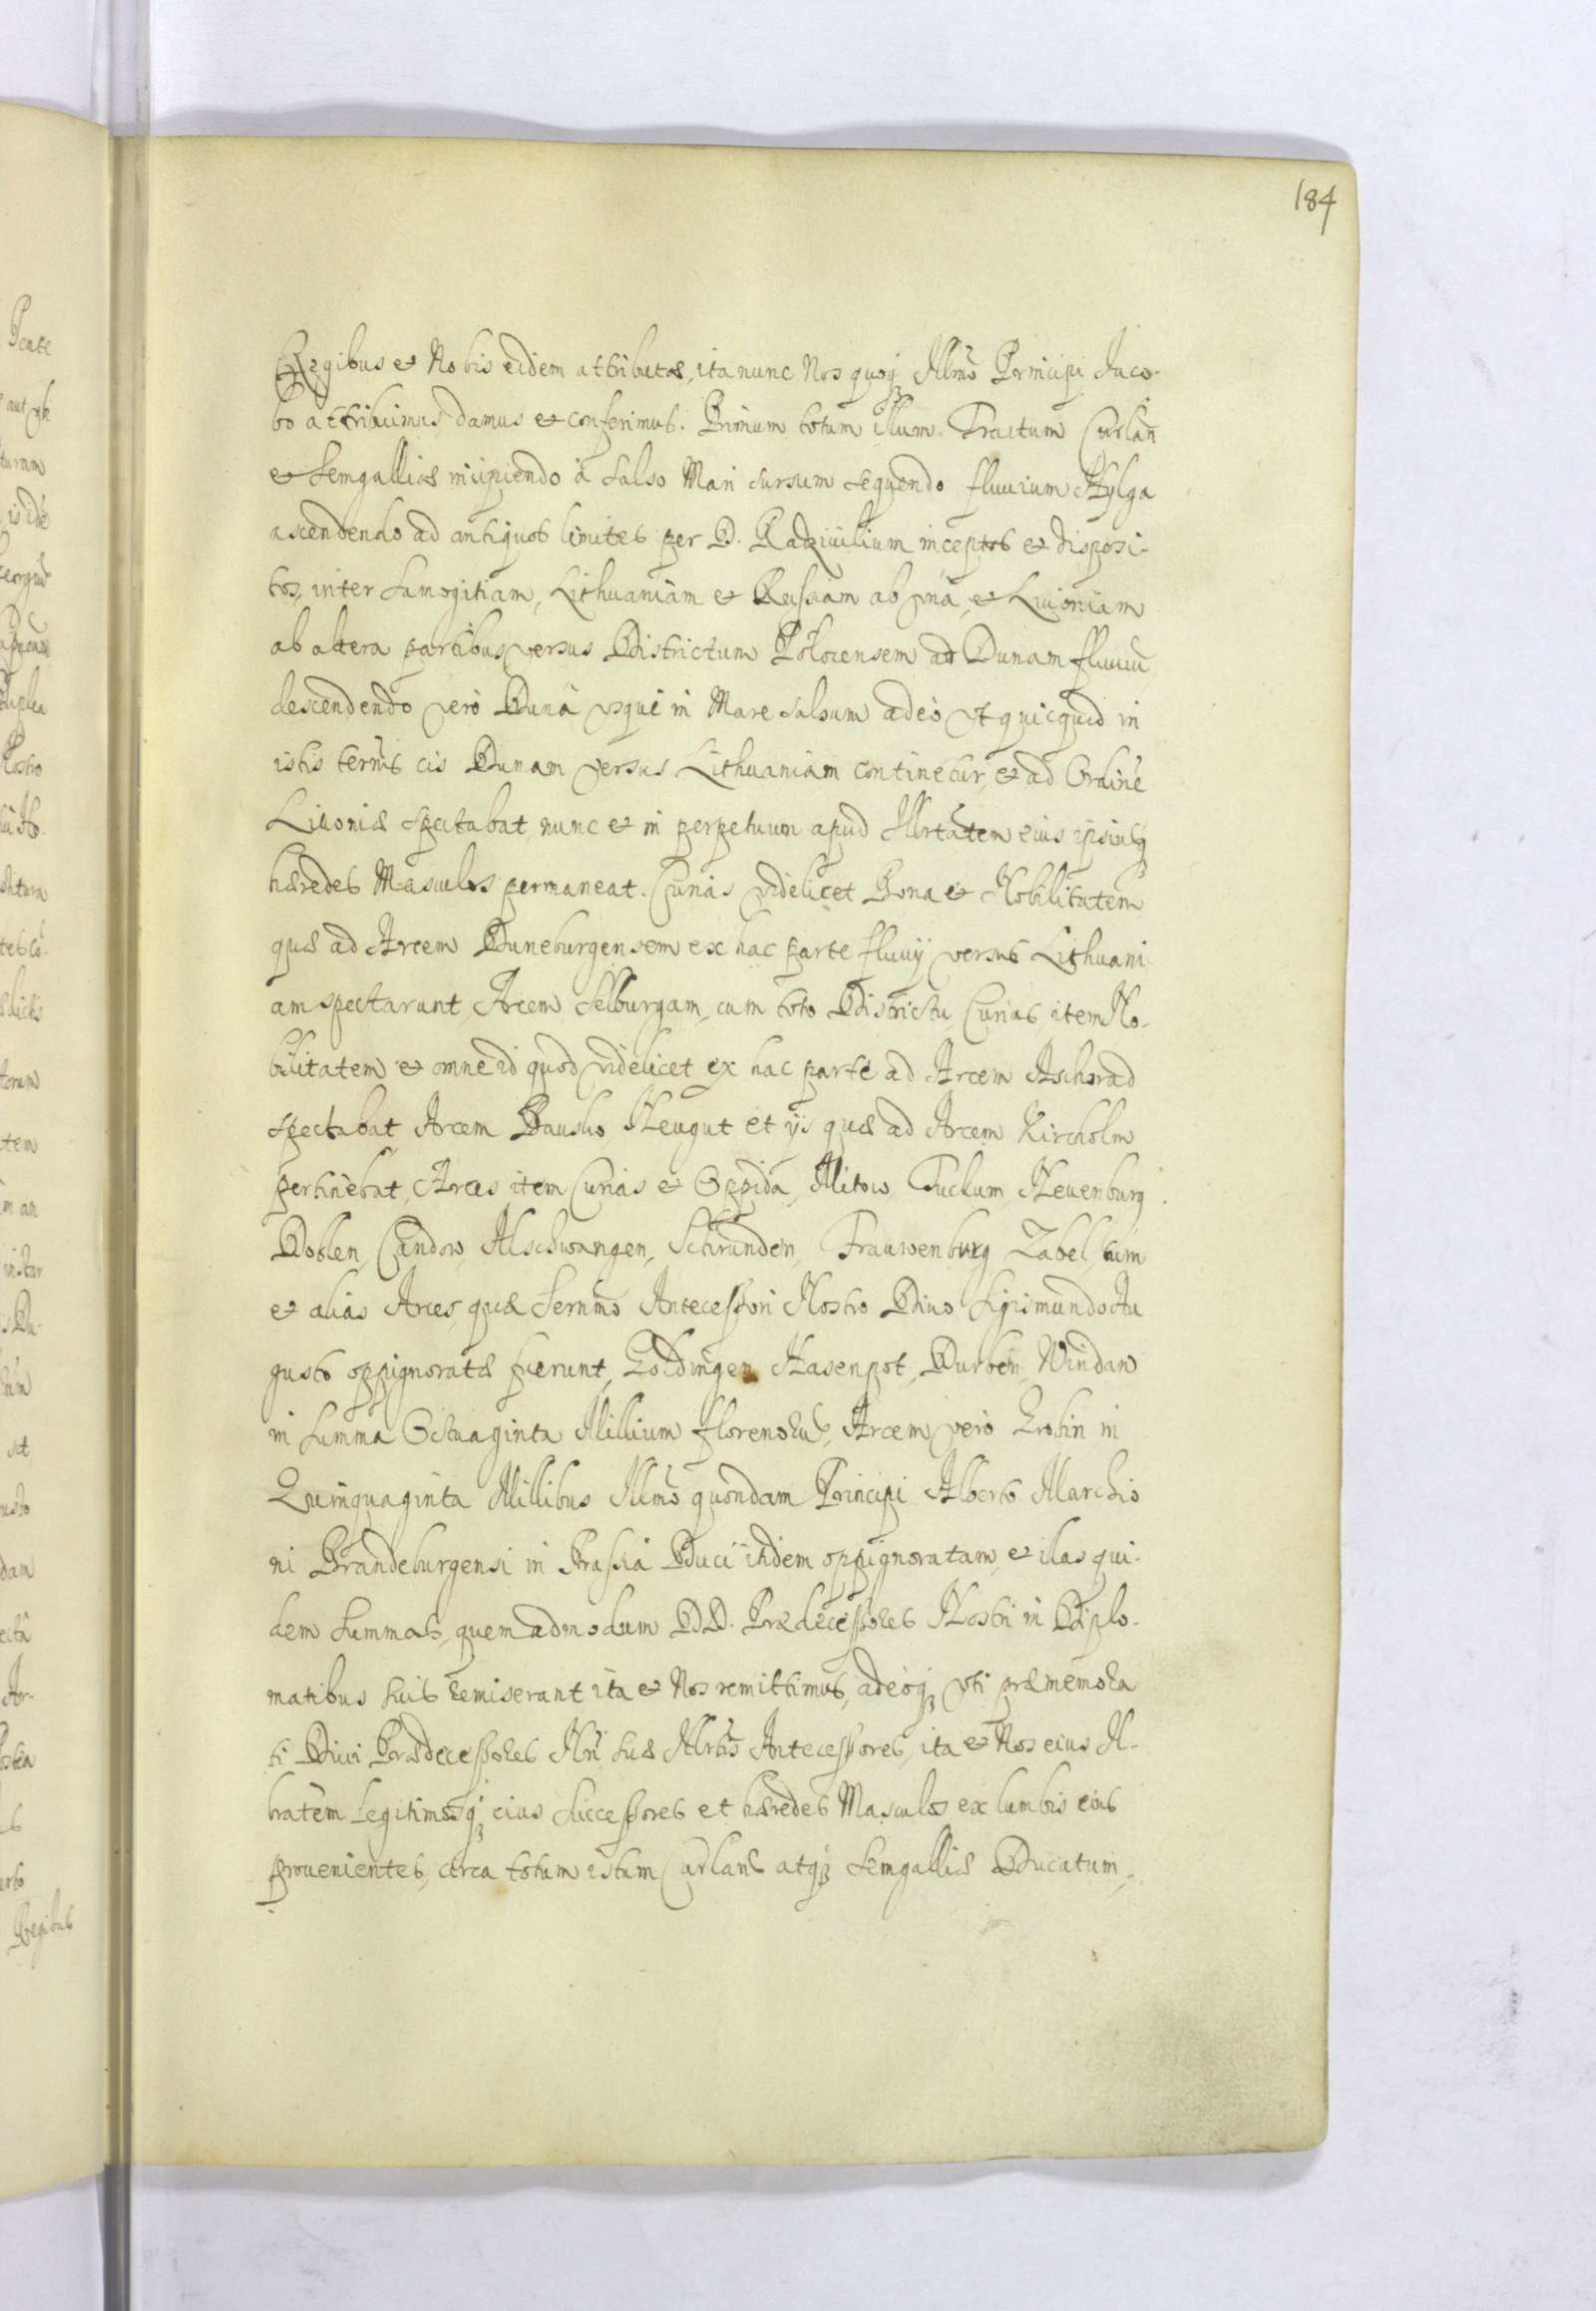 184
Regibus et Nobis eidem attributæ, ita nunc Nos quoq; Illmo Principi Jaco-
bo attribuimus, damus et conferimus. Primum totum illum Tractum Curlan
et Semgalliæ incipiendo à Salso Mari sursum sequendo fluuium Hylga
ascendendo ad antiquos limites per D. Radziuilium inceptos et disposi-
tos, inter Samogitiam, Lithuaniam et Russiam ab una, et Liuoniam
ab altera partibus versus Districtum Polocensem ad Dunam fluuiū
descendendo verò Duna usque in Mare salsum adeò ut quicquid in
istis ternis cis Dunam versus Lithuaniam continetur, et ad Ordinē
Liuoniæ spectabat, nunc et in perpetuum apud Illrtatem eius ipsiusq;
hæredes Masculos permaneat. Curias videlicet Bona et Nobilitatem
quæ ad Arcem Duneburgensem ex hac parte fluuij versus Lithuani
am spectarunt, Arcem Selburgam, cum toto Districtu, Curias item No-
bilitatem et omne id quod videlicet ex hac parte ad Arcem Ascherad
spectabat Arcem Bausko, Neugut et ijs quæ ad Arcem Kircholm
pertinebat, Arces item Curias et Oppida, Mitow, Tuckum, Neuenburg
Doblen, Candow, Alschwangen, Schrunden, Frauwenburg Zabel, tum
et alias Arces, quæ Sermo Antecessori Nostro Diuo Sigismundo Au
gusto oppignoratæ fuerunt, Goldingen Hasenpot, Durben, Windaw
in Summa Octuaginta Millium florenorum, Arcem verò Grobin in
Quinquaginta Millibus Illmo quondam Principi Alberto Marchio
ni Brandeburgensi in Prussia Duci itidem oppignoratam, et illas qui-
dem Summas, quemadmodum DD. Prædecessores Nostri in Diplo-
matibus suis remiserant ita et Nos remittimus, adeoq; uti præmemora
ti Diui Prædecessores Nri suæ Illrtis Antecessores, ita et Nos eius Il-
lrtatem Legitimosq; eius Successores et hæredes Masculos ex lumbis eius
prouenientes, circa totum istum Curlan: atq; Semgalliæ Ducatum,